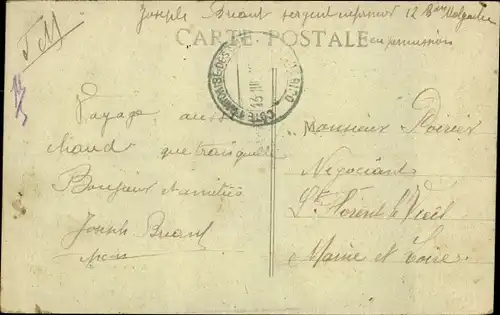 Joseph Briant sergent infirmier 12 Bon Malgache
CARTE POSTALE
en permission
F M
CÔTE FRANÇAISE DES
Voyage aussi
chaud que tranquille
Bonjour et amitiés
Joseph Briant
Monsieur Poirier
Négociant
St Florent le Vieil
Maine et Loire